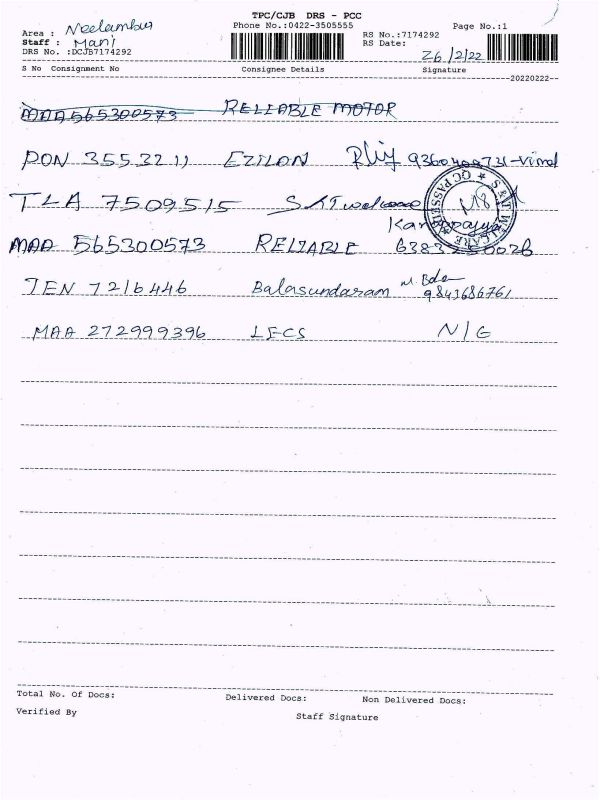 TPC/CJB DRS - PCC
Area : Neelambur Phone No.:0422-3505555 RS No.:7174292 Page No.:1
Staff : Mani RS Date:
DRS No. :DCJB7174292 26/2/22
S No Consignment No Consignee Details Signature
20220222
MAA 565300573 RELIABLE MOTOR
PON 3553211 EZILAN 9360400731-Vimal
TLA 7509515 S & T welcome
MAA 565300573 RELIABLE
TEN 7216446 Balasundaram 9841686761
MAA 272999396 LECS N/G
Total No. Of Docs: Delivered Docs: Non Delivered Docs:
Verified By Staff Signature